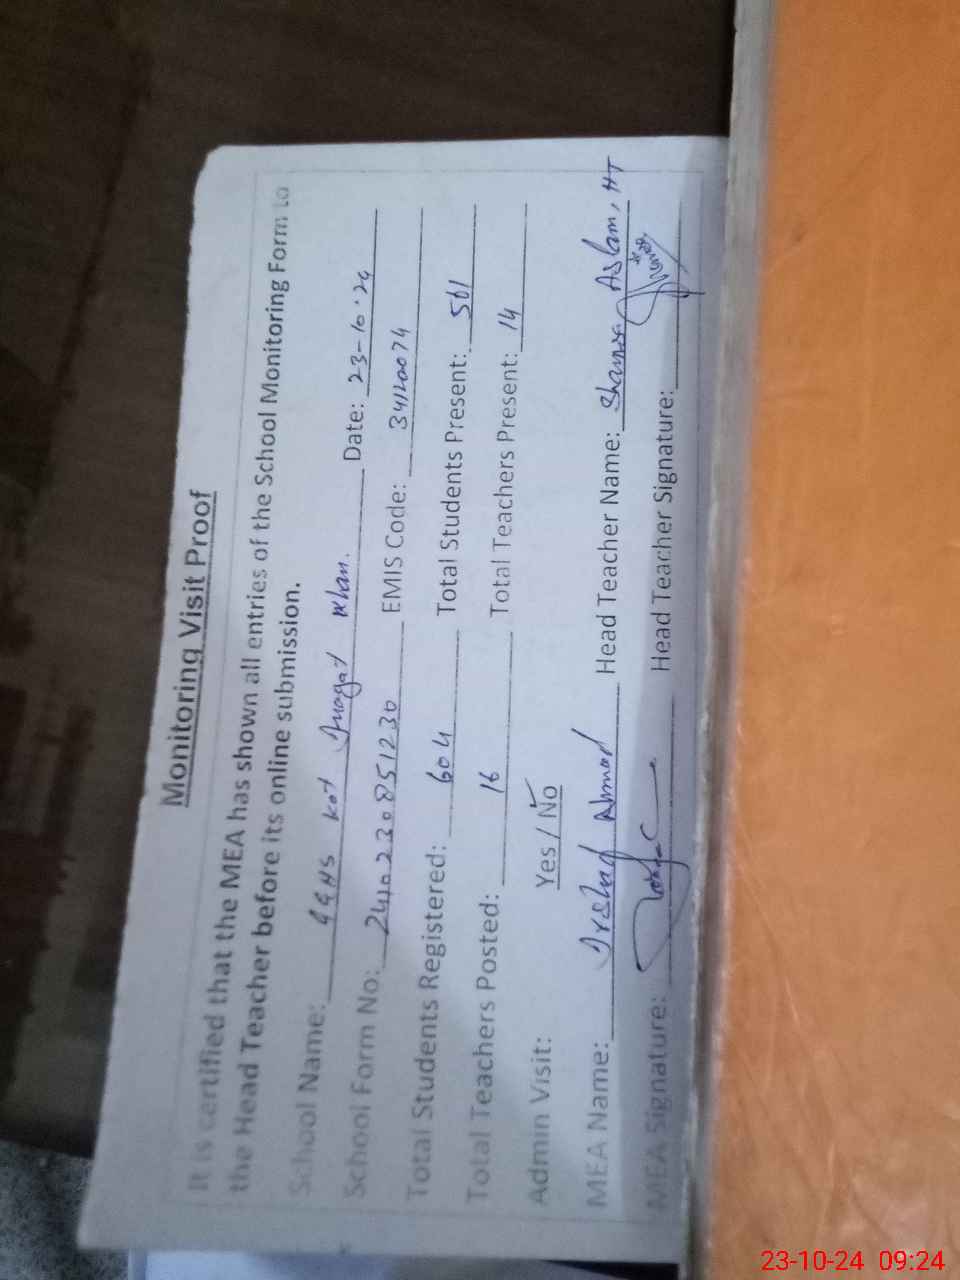 Monitoring Visit Proof
It is certified that the MEA has shown all entries of the School Monitoring Form to
the Head Teacher before its online submission.
School Name: GGHS Kot Khan. Date: 23-10-24
School Form No: 2410230851230 EMIS Code: 34120074
Total Students Registered: 604 Total Students Present: 561
Total Teachers Posted: 16 Total Teachers Present: 14
Admin Visit: Yes / No
MEA Name: Irshad Ahmad Head Teacher Name: Aslam, HT
MEA Signature: Head Teacher Signature:
23-10-24 09:24